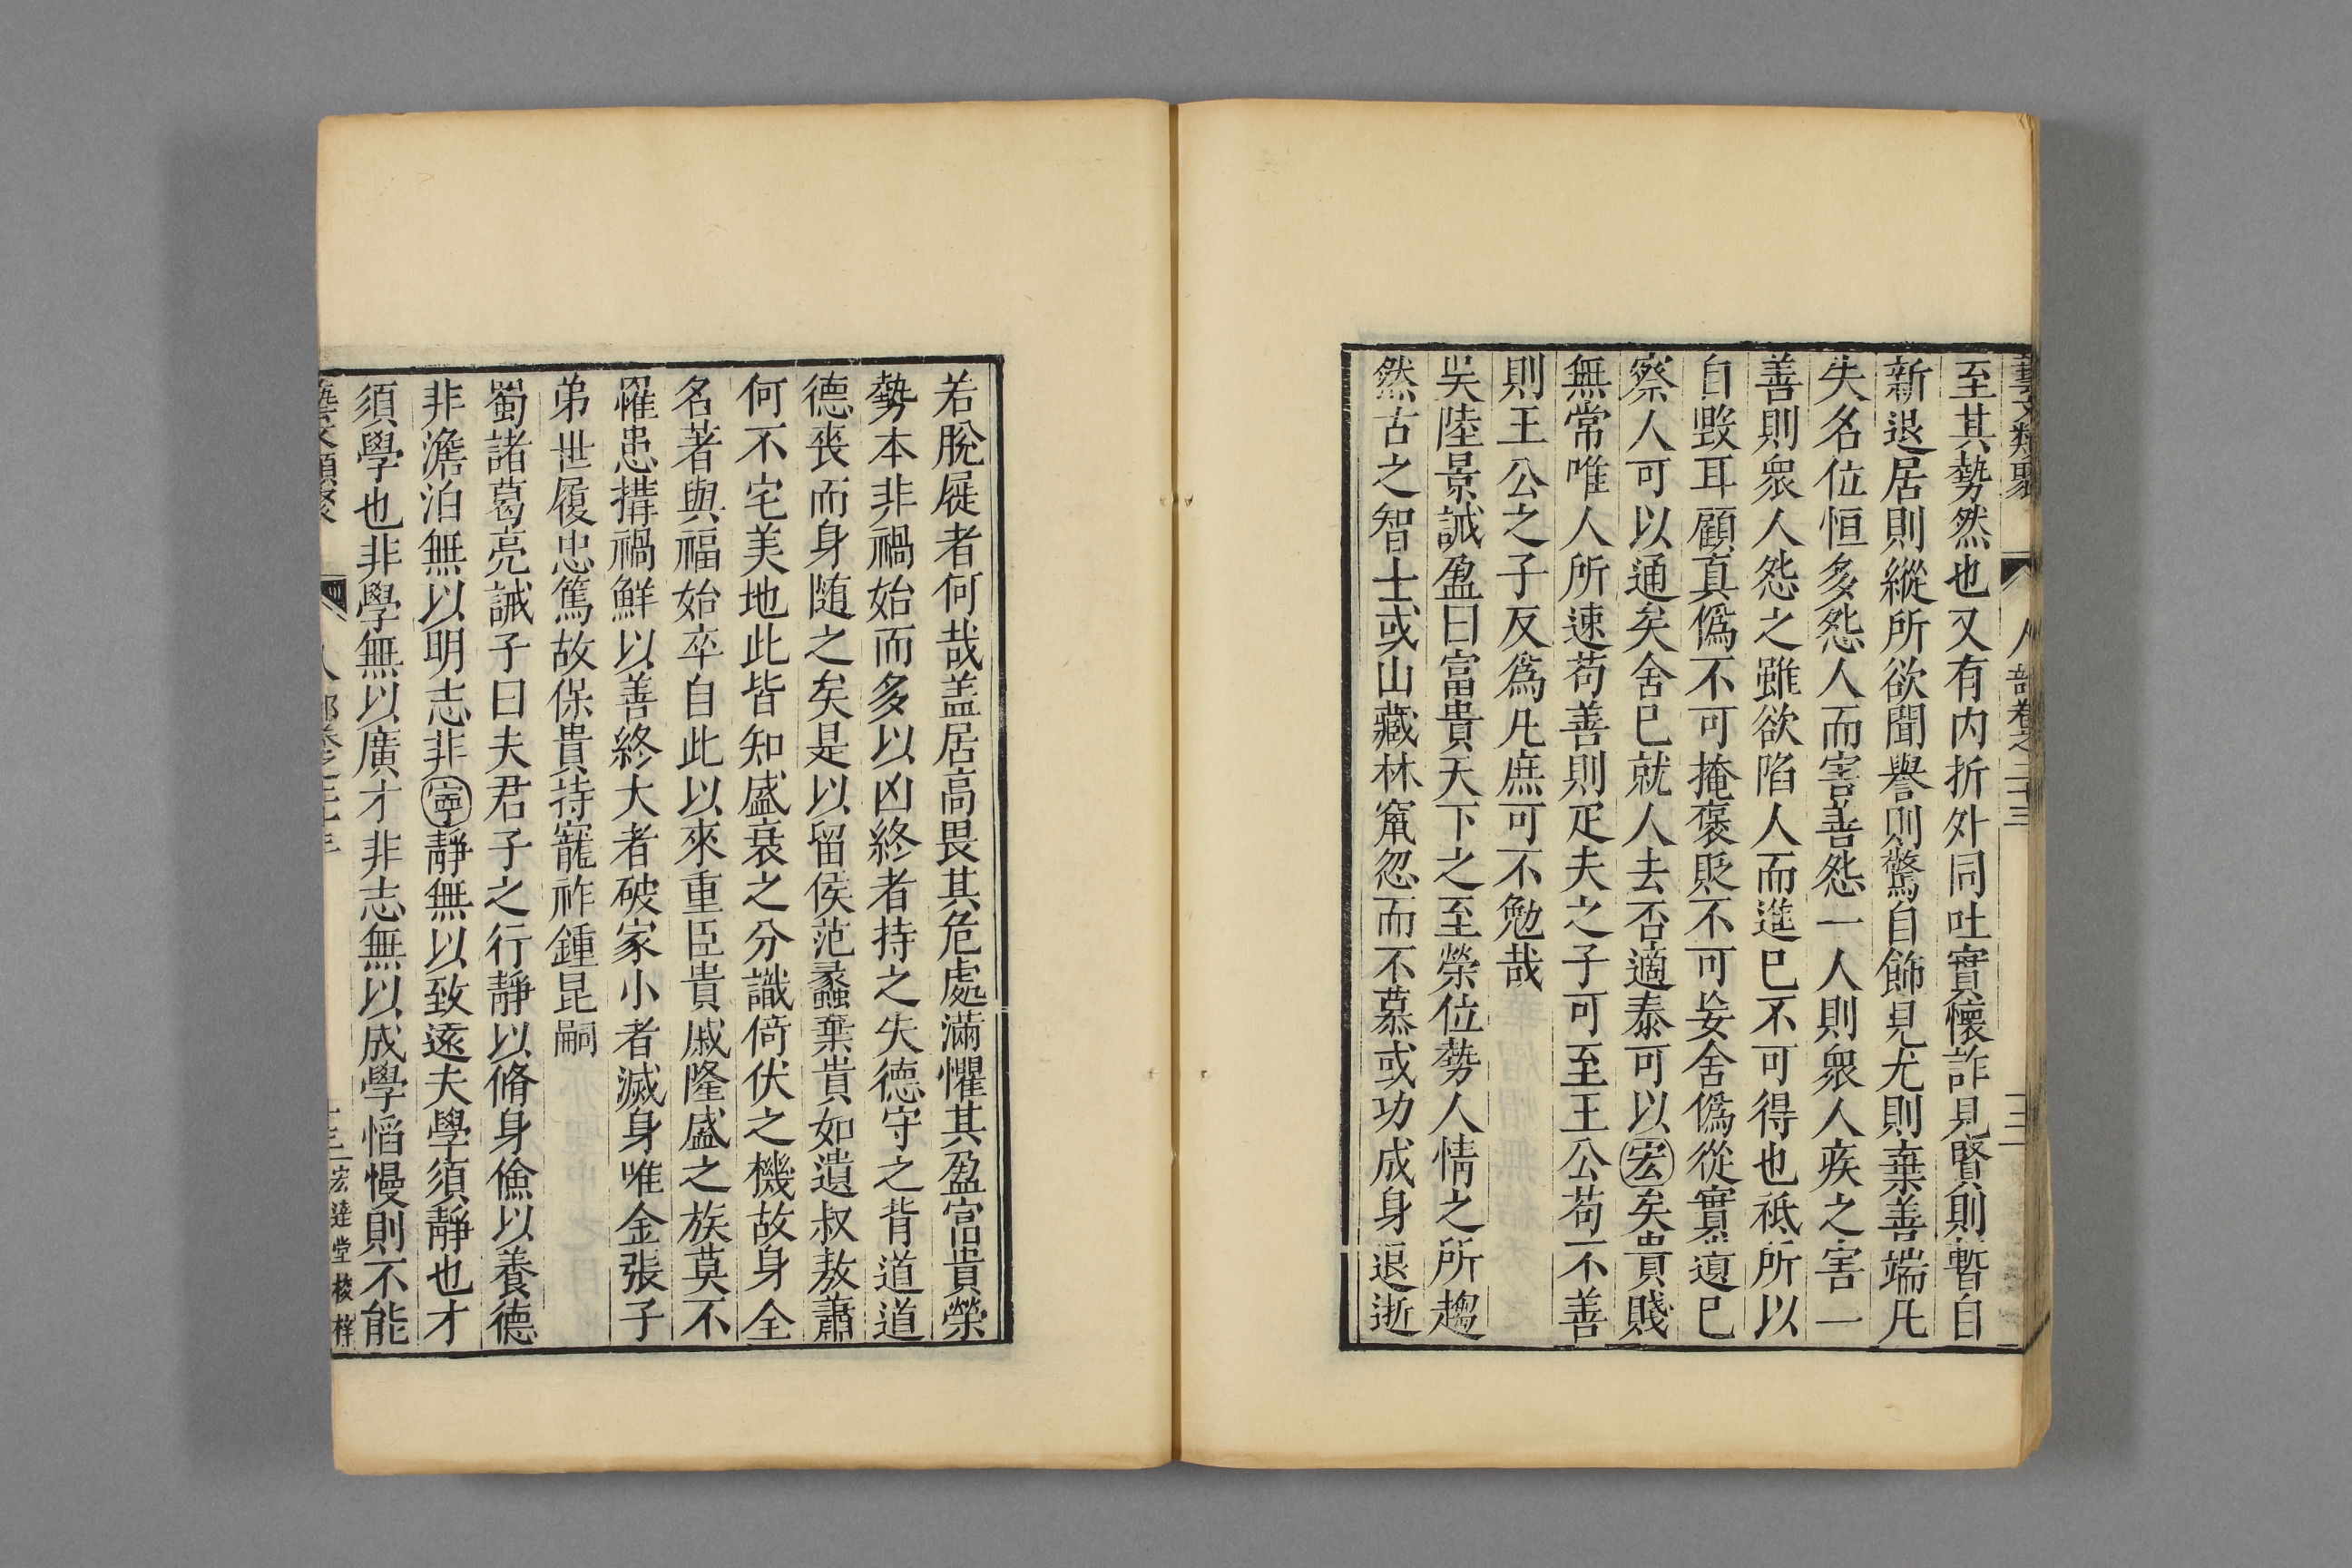 藝文類聚 人部卷之二十三 十三
至其勢然也又有内折外同吐實懷詐見賢則暫自
新退居則縱所欲聞譽則驚自飾見尤則棄善端凡
失名位恒多怨人而害善怨一人則衆人疾之害一
善則衆人怨之雖欲陷人而進已不可得也祗所以
自毀耳顧真僞不可掩褒貶不可妄舍僞從實遺已
察人可以通矣舍已就人去否適泰可以宏矣貴賤
無常唯人所速苟善則疋夫之子可至王公苟不善
則王公之子反爲凡庶可不勉哉
吳陸景誡盈曰富貴天下之至榮位勢人情之所趨
然古之智士或山藏林竄忽而不慕或功成身退逝
若脫屣者何哉盖居高畏其危處滿懼其盈富貴榮
勢本非禍始而多以凶終者持之失德守之背道道
德喪而身随之矣是以留侯范蠡棄貴如遺叔敖蕭
何不宅美地此皆知盛衰之分識倚伏之機故身全
名著與福始卒自此以來重臣貴戚隆盛之族莫不
罹患搆禍鮮以善終大者破家小者滅身唯金張子
弟世履忠篤故保貴持寵祚鍾昆嗣
蜀諸葛亮誡子曰夫君子之行靜以脩身儉以養德
非澹泊無以明志非寧靜無以致遠夫學須靜也才
須學也非學無以廣才非志無以成學慆慢則不能
藝文類聚 人部卷之二十三 十三 宏達堂校梓